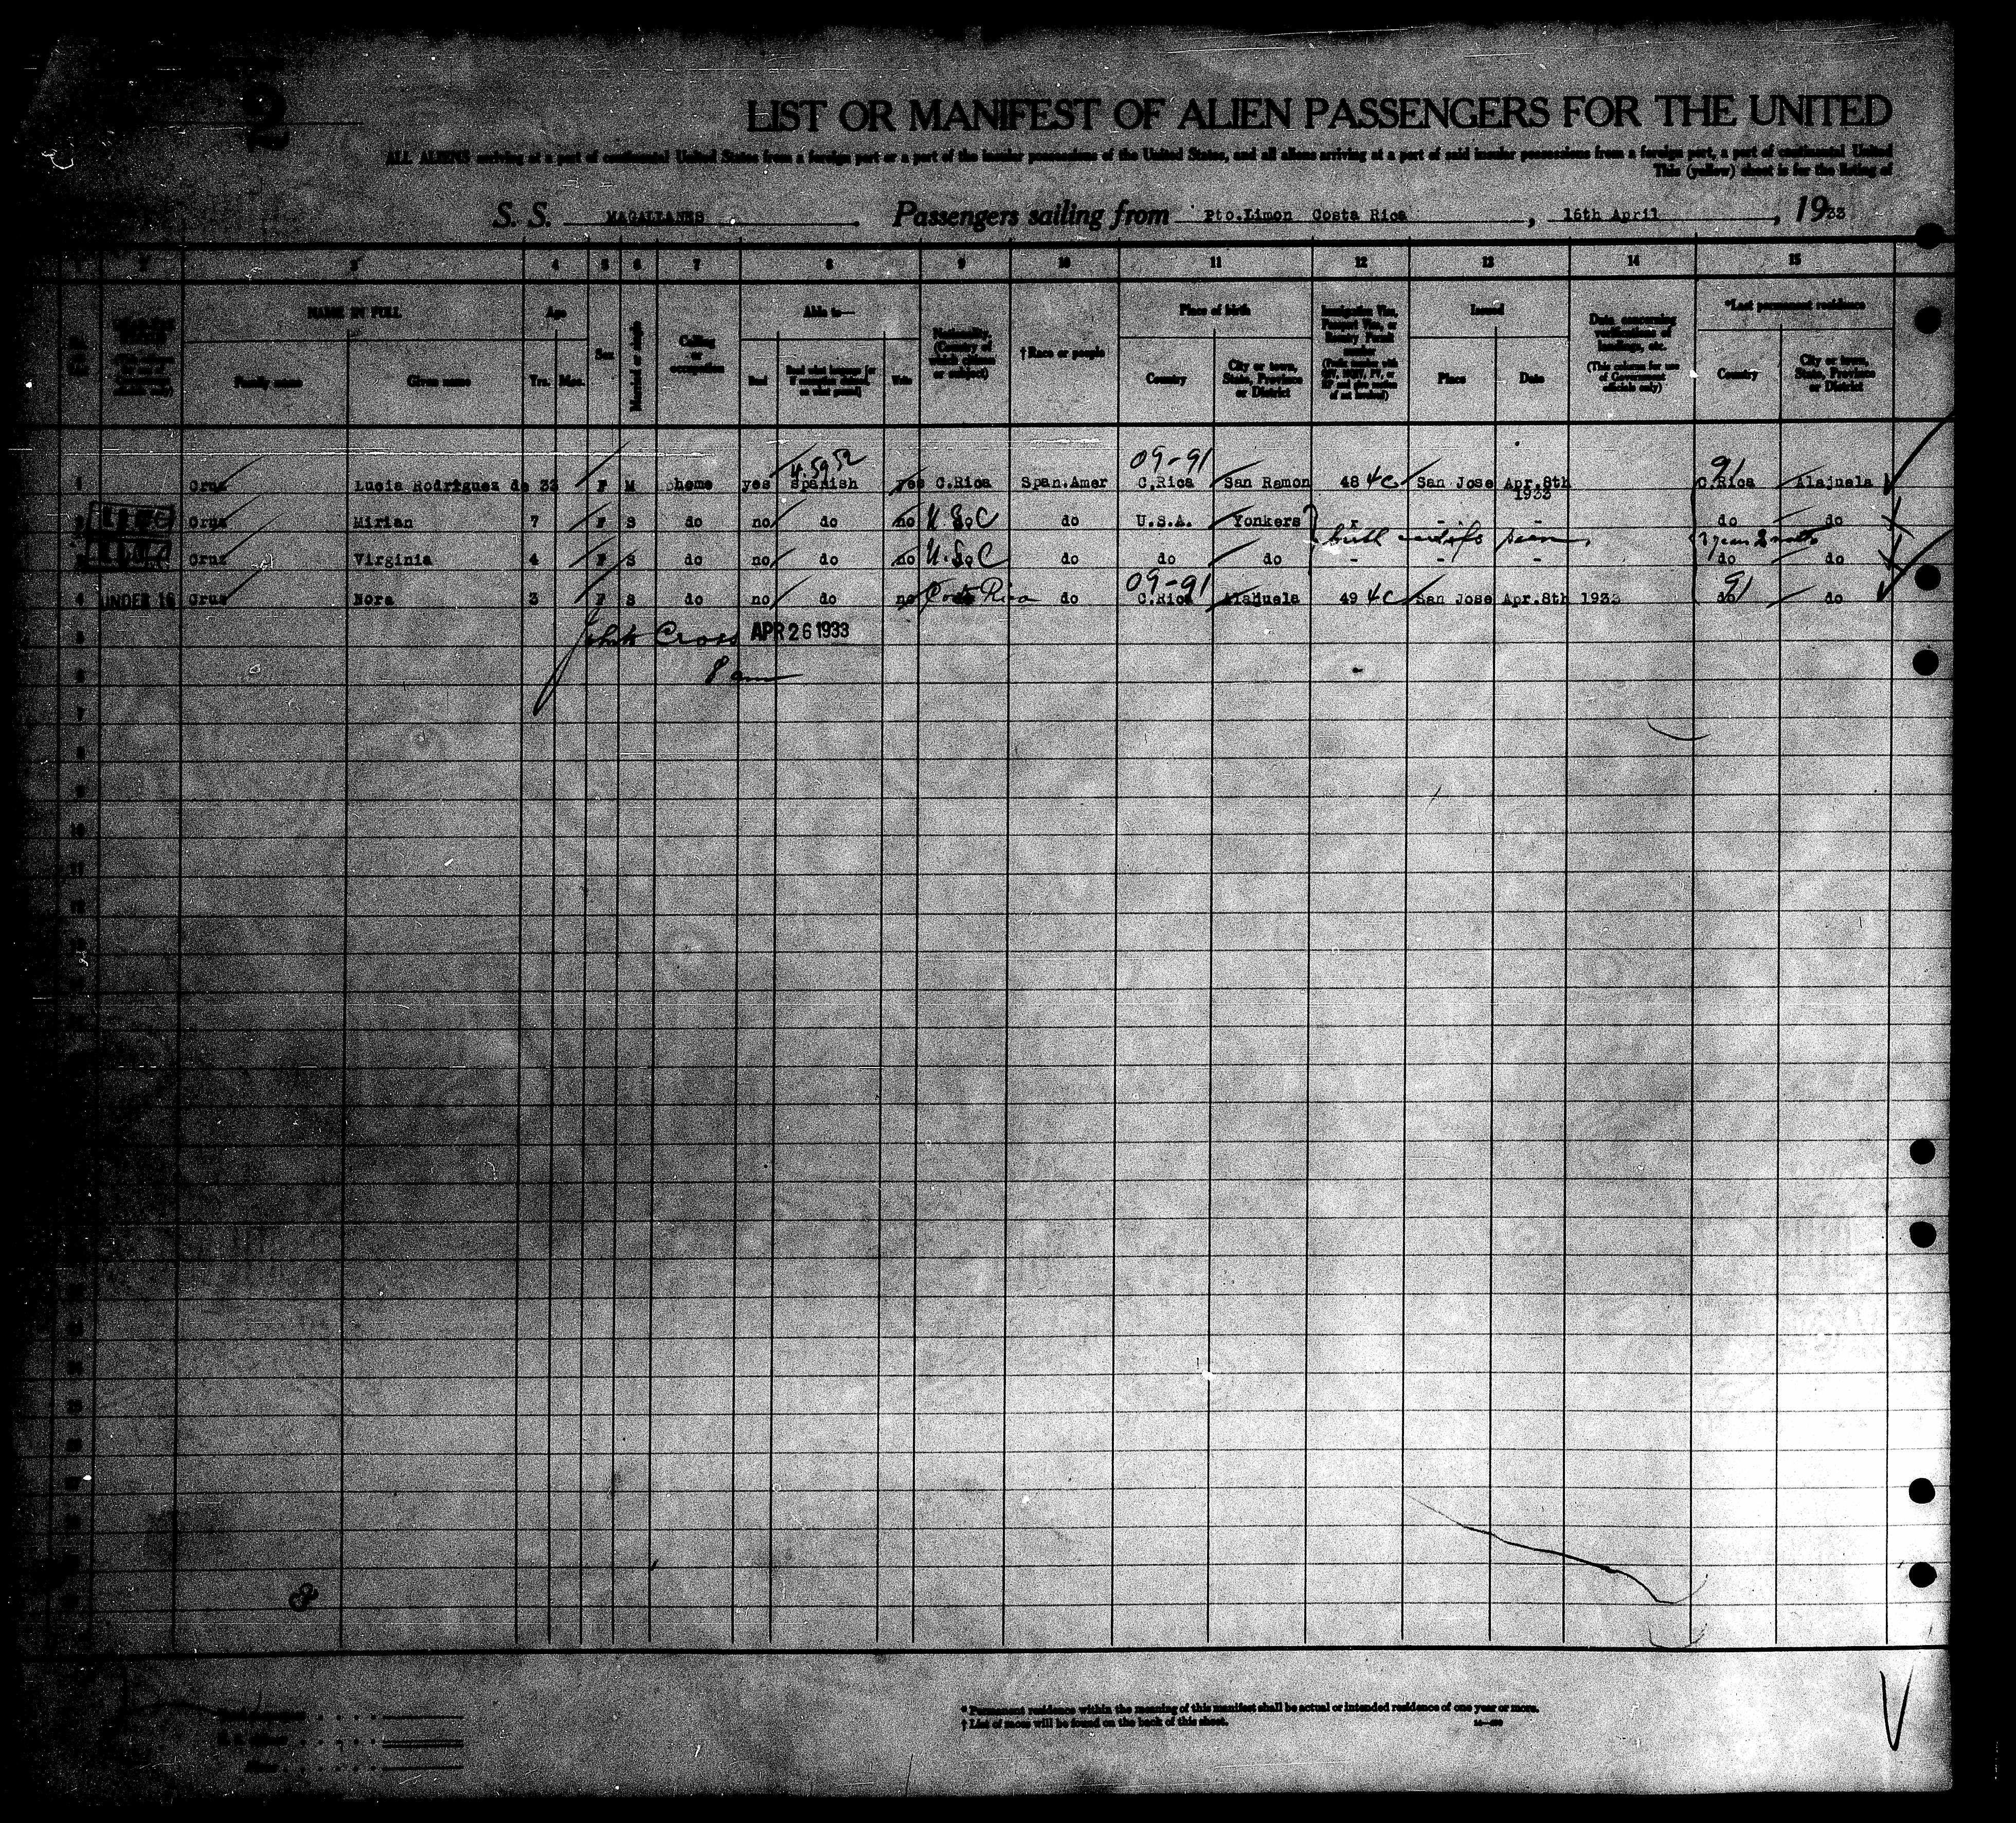 2
LIST OR MANIFEST OF ALIEN PASSENGERS FOR THE UNITED
ALL ALIENS arriving at a port of continental United States from a foreign port or a port of the insular possessions of the United States, and all aliens arriving at a port of said insular possessions from a foreign port, a port of continental United
This (yellow) sheet is for the listing of
S. S. MAGALLANES . Passengers sailing from Pto.Limon Costa Rica , 16th April , 1933
3 4 5 6 7 8 9 10 11 12 13 14 15
NAME IN FULL Age Sex Married or single Calling or occupation Able to— Nationality. (Country of which citizen or subject) †Race or people Place of birth Issued Data concerning verifications of landings, etc. (This column for use of Government officials only) *Last permanent residence
Family name Given name Yrs. Mos. Read Write Country City or town, State, Province or District Place Date Country City or town, State, Province or District
4 5952 09-91 91
1 Cruz Lucia Rodriguez de 33 F M home yes Spanish yes C.Rica Span.Amer C.Rica San Ramon 48 4C San Jose Apr.8th 1933 C.Rica Alajuela
2 Cruz Mirian 7 F S do no do no U.S.C do U.S.A. Yonkers x - - do do
birth certifs seen
3 Cruz Virginia 4 F S do no do no U.S.C do do do - - - do do
09-91 91
4 UNDER 16 Cruz Nora 3 F S do no do no Costa Rica do C.Rica Alajuela 49 4C San Jose Apr.8th 1933 do do
5 Cross APR 26 1933
6 8 am
7
8
9
10
11
12
* Permanent residence within the meaning of this manifest shall be actual or intended residence of one year or more.
† List of races will be found on the back of this sheet.